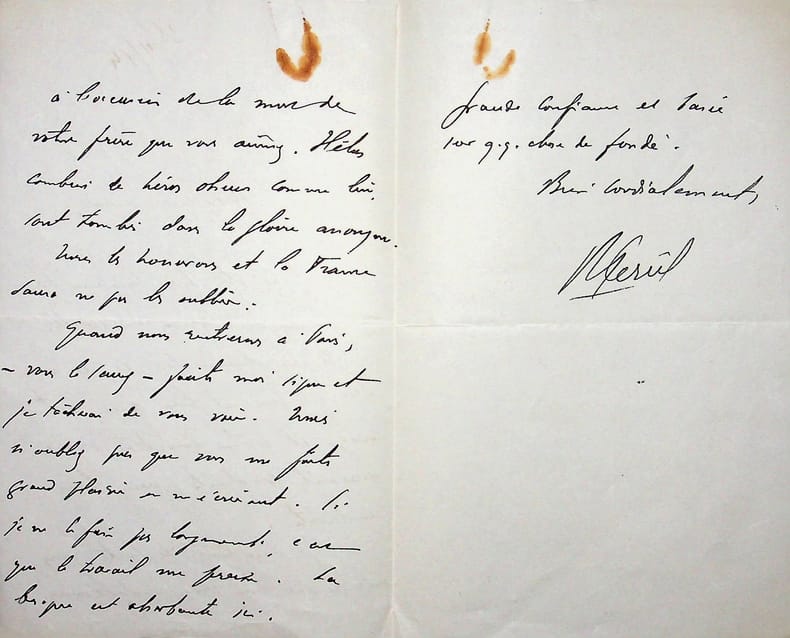 à l'occasion de la mort de
votre frère que vous aimiez. Hélas
combien de héros obscurs comme lui,
sont tombés dans la gloire anonyme.
Nous les honorons et la France
saura ne pas les oublier.
Quand nous rentrerons à Paris,
– vous le – faites moi signe et
je tâcherai de vous voir. Mais
n'oubliez pas que vous me faites
grand plaisir en m'écrivant. Si
je ne le fais pas longuement, c'est
que le travail me presse. La
besogne est absorbante ici.
grande confiance et basée
sur q.q. chose de fondé.
Bien cordialement,